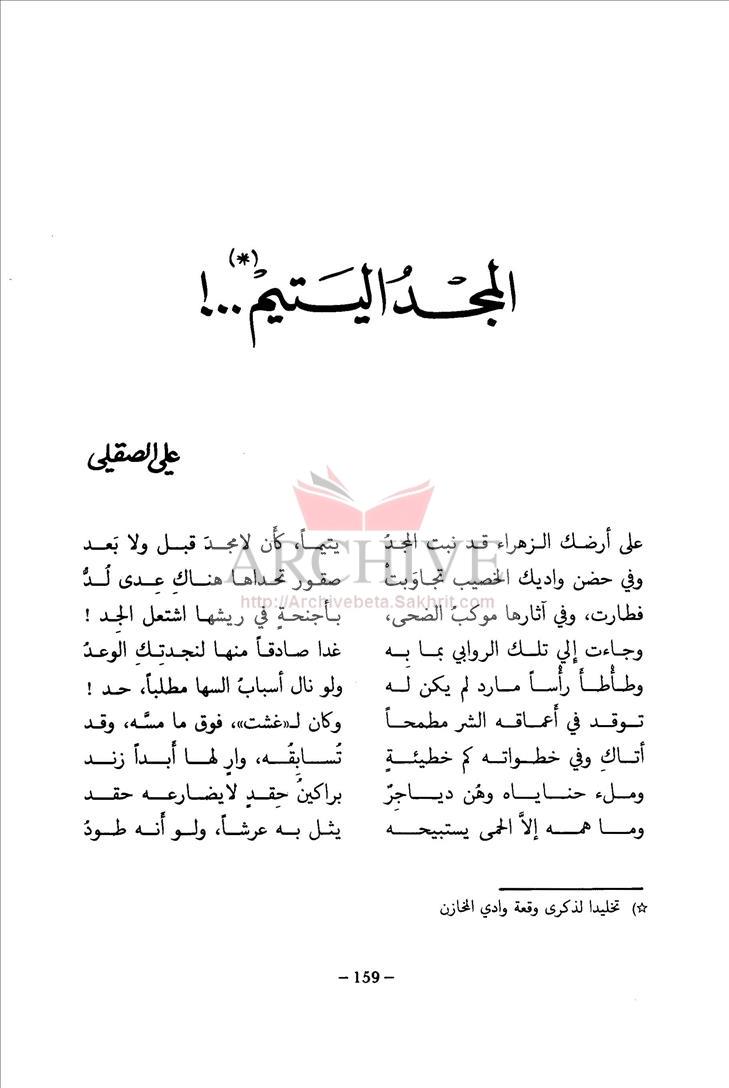 المجْدُ اليَتيمْ...! (*)
علي الصقلي
على أرضك الزهراء قد نبت المجدُ يتيماً، كأَن لامجدَ قبل ولا بَعد
وفي حضن واديك الخصيب تجاوَبتْ صقور تحداها هناكِ عِدى لُدُّ
فطارت، وفي آثارها موكبُ الضحى، بأجنحةٍ في ريشها اشتعل الجِد !
وجاءت إلي تلك الروابي بما بِه غدا صادقاً منها لنجدتِكِ الوعدُ
وطأْطأَ رأْساً مارد لم يكن له ولو نال أسبابُ السها مطلباً، حد !
توقد في أَعماقه الشر مطمحاً وكان لـ«غشت»، فوق ما مسَّه، وقد
أتاكِ وفي خطواته كم خطيئةٍ تُسابِقُه، وارٍ لها أَبداً زند
وملء حناياه وهُن دياجِرٌ براكينُ حِقدٍ لايضارعه حقد
وما همه إلاَّ الحمى يستبيحه يثل به عرشاً، ولو أَنه طودُ
ARCHIVE
http://Archivebeta.Sakhrit.com
☆) تخليدا لذكرى وقعة وادي المخازن
– 159 –